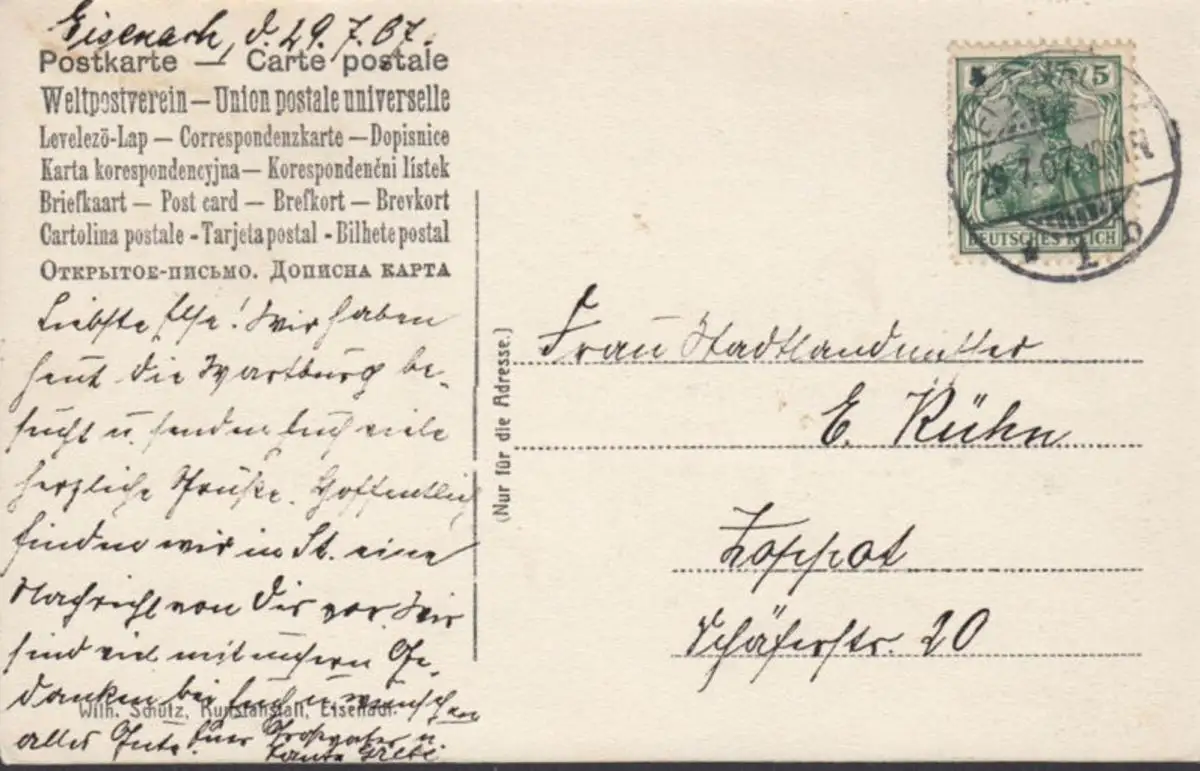 Eisenach, d. 29.7.07.
Postkarte — Carte postale
Weltpostverein — Union postale universelle
Levelező-Lap — Correspondenzkarte — Dopisnice
Karta korespondencyjna — Korespondenční lístek
Briefkaart — Post card — Brefkort — Brevkort
Cartolina postale - Tarjeta postal - Bilhete postal
Открытое-письмо. Дописна карта
Liebste Else! Wir haben
heut die Wartburg be-
sucht u. senden Euch viele
herzliche Grüße. Hoffentlich
finden wir in St. eine
Nachricht von Dir vor. Wir
sind viel mit unsern Ge-
danken bei Euch u. wünschen
alles Gute. Euer Großvater u.
Tante Grete
Wilh. Schütz, Kunstanstalt, Eisenach.
(Nur für die Adresse.)
5 5
DEUTSCHES REICH
29.7.07.
1 b
Frau Stadtlandmesser
E. Kühn
Zoppot
Schäferstr. 20